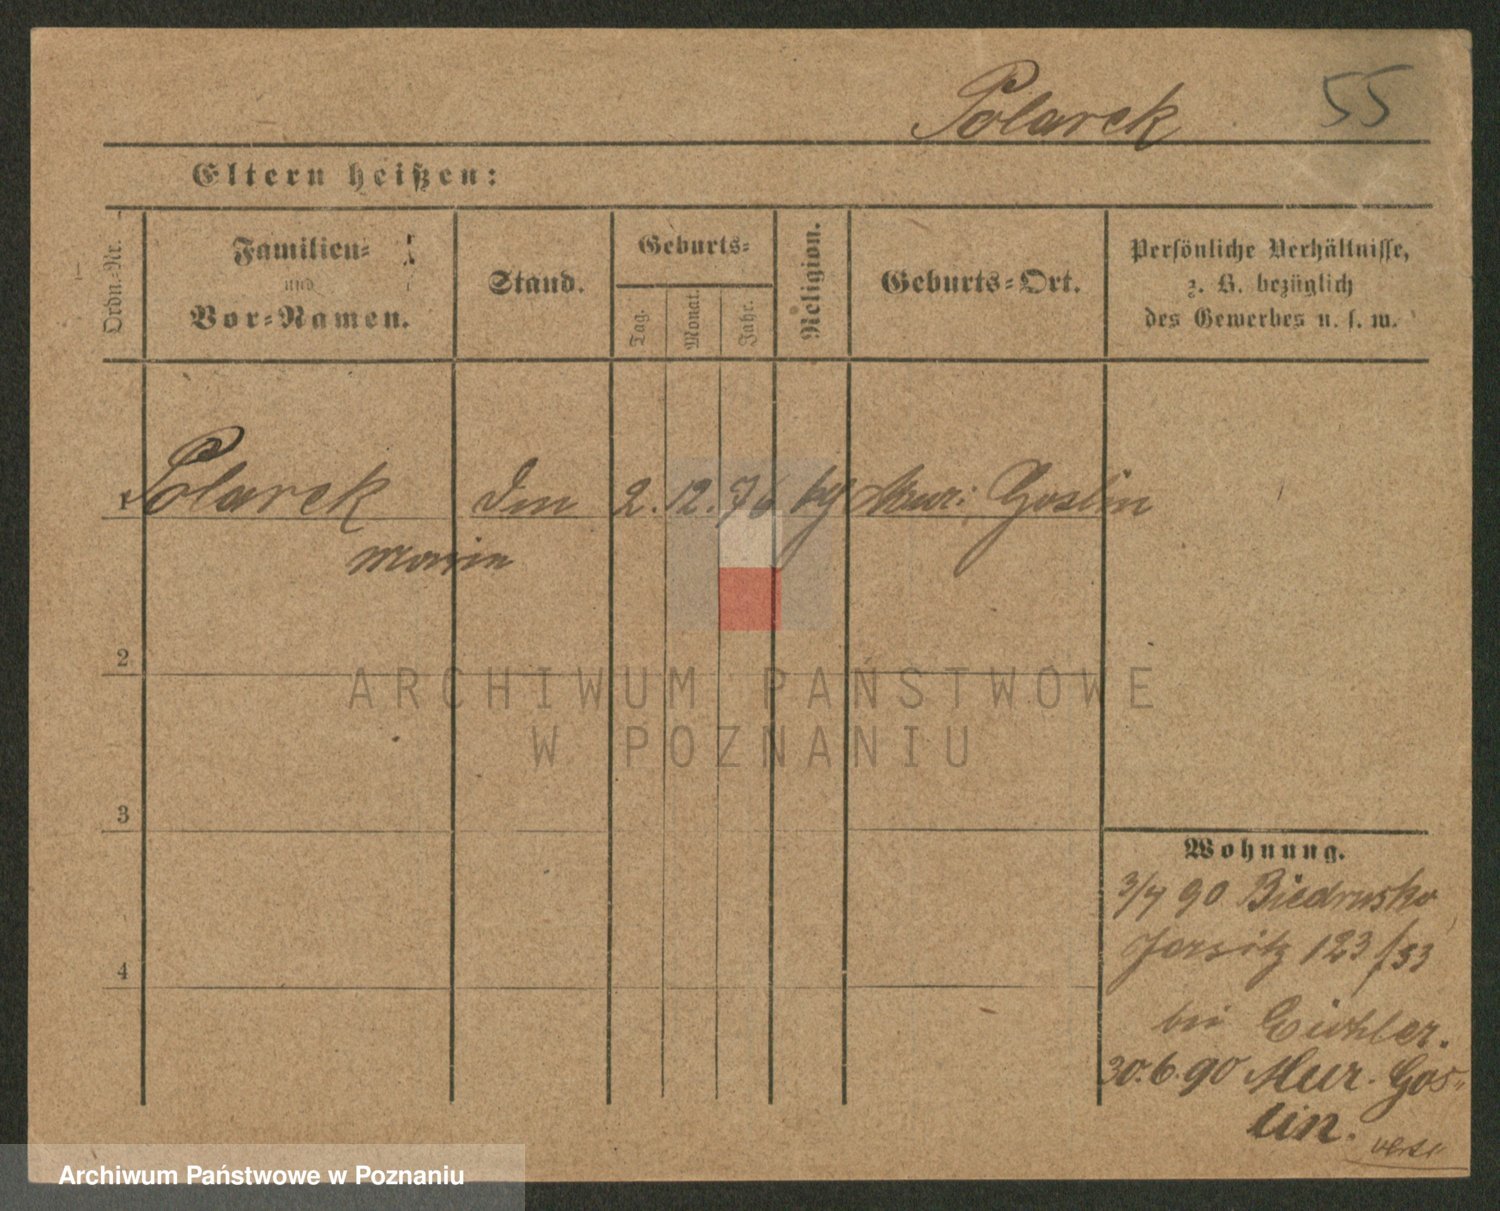 Polarek 55
Eltern heißen:
Ordn.-Nr.
Familien-
und
Vor-Namen.
Stand.
Geburts-
Tag.
Monat.
Jahr.
Religion.
Geburts-Ort.
Persönliche Verhältnisse,
z. B. bezüglich
des Gewerbes u. s. w.
1 Polarek 2. 12. 76 Mur: Goslin
Marie
2
ARCHIWUM PAŃSTWOWE
W POZNANIU
3
Wohnung.
3/7 90 Biedrusko
Jersitz 123/33
4
bei Eichler.
30.6.90 Mur. Gos-
lin.
Archiwum Państwowe w Poznaniu